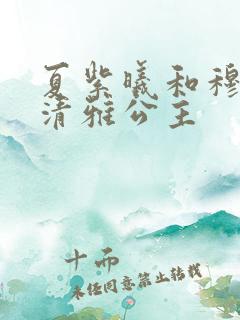 夏紫曦和穆
清雅公主
十而
未经同意禁止转载